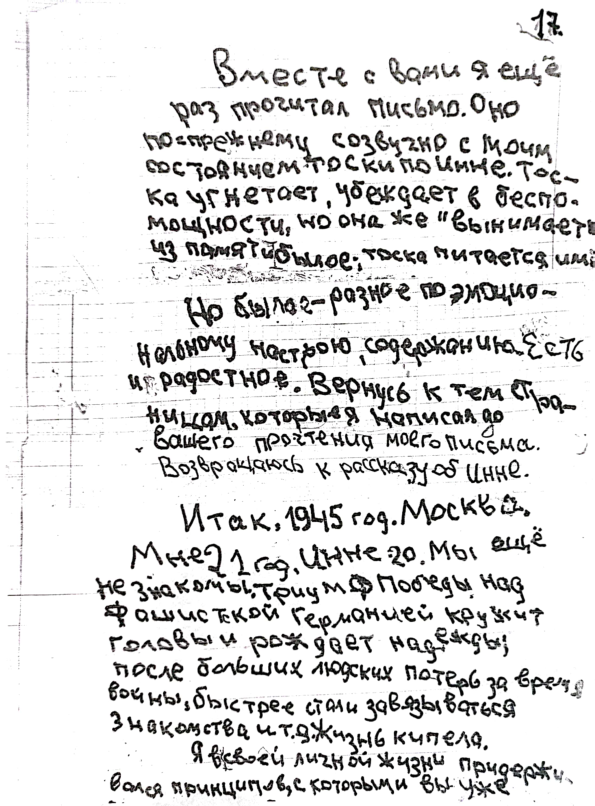 17.
Вместе с вами я ещё
раз прочитал письмо. Оно
по-прежнему созвучно с моим
состоянием тоски по Инне. Тос-
ка угнетает, убеждает в беспо-
мощности, но она же "вынимает"
из памяти былое; тоска питается им.
Но былое - разное по эмоцио-
нальному настрою, содержанию. Есть
и радостное. Вернусь к тем стра-
ницам, которые я написал до
вашего прочтения моего письма.
Возвращаюсь к рассказу об Инне.
Итак, 1945 год. Москва.
Мне 21 год, Инне 20. Мы ещё
не знакомы, триумф Победы над
фашисткой Германией кружит
головы и рождает надежды;
после больших людских потерь за время
войны, быстрее стали завязываться
знакомства и т.д. Жизнь кипела.
Я в своей личной жизни придержи
вался принципов, с которыми вы уже